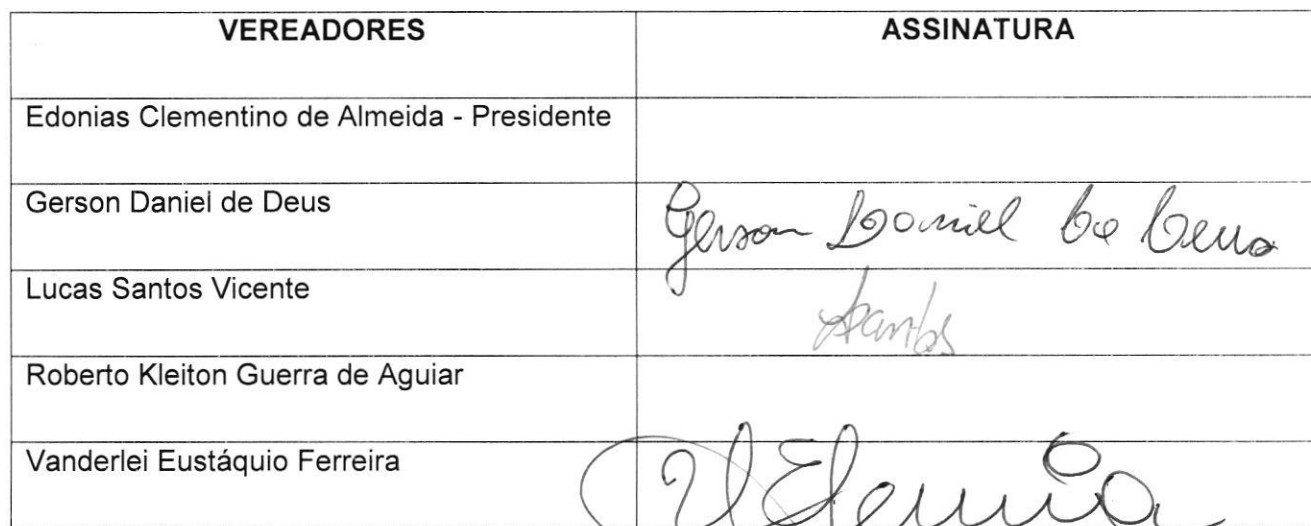 VEREADORES ASSINATURA
Edonias Clementino de Almeida - Presidente
Gerson Daniel de Deus Gerson Daniel de Deus
Lucas Santos Vicente Santos
Roberto Kleiton Guerra de Aguiar
Vanderlei Eustáquio Ferreira